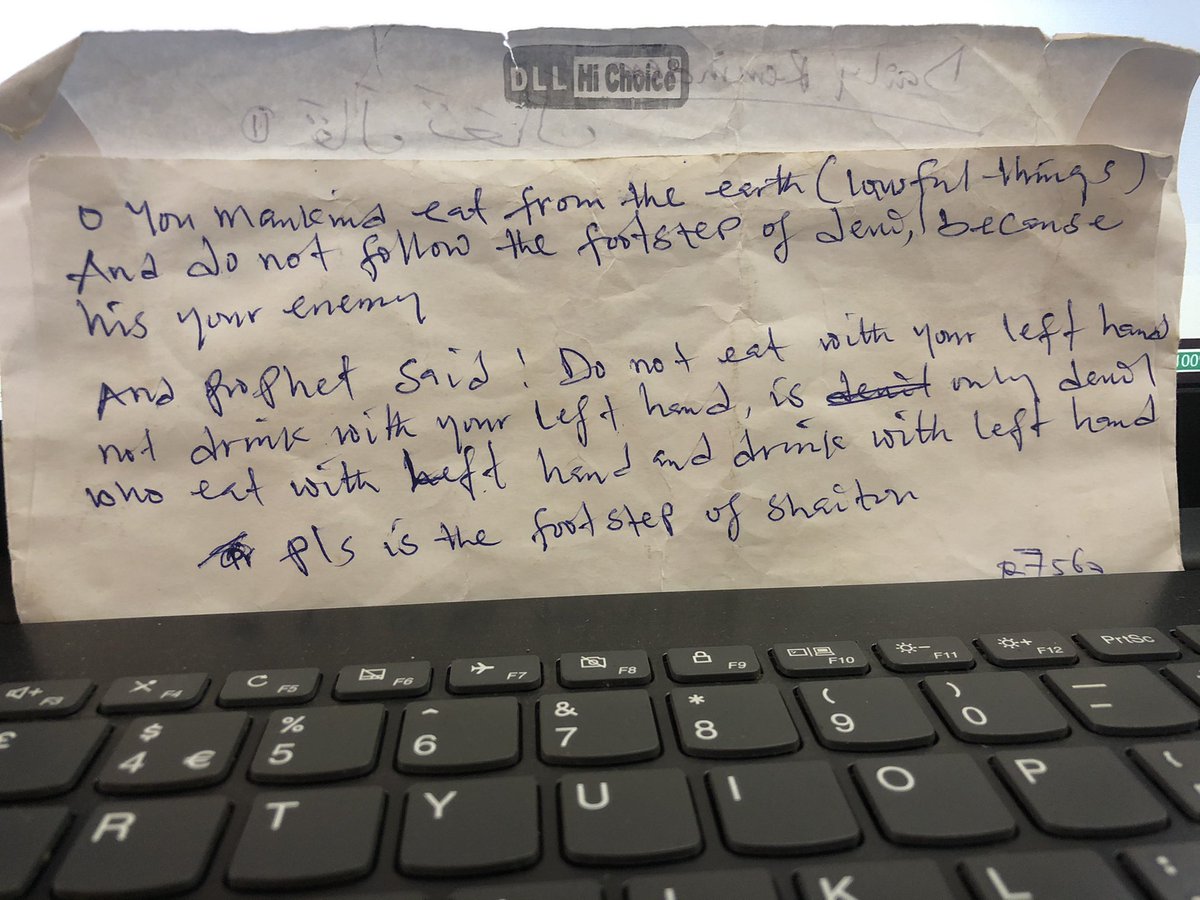 DLL Hi Choice
Daily
قال تعالى
11
O You mankind eat from the earth (lawful things)
And do not follow the footstep of devil, because
his your enemy
And prophet said! Do not eat with your left hand
not drink with your left hand, is devil only devil
who eat with left hand and drink with left hand
pls is the footstep of shaiton
100
F3 F4 F5 F6 F7 F8 F9 F10 F11 F12 PrtSc
£ $ 4 € % 5 ^ 6 & 7 * 8 ( 9 ) 0 _ -
R T Y U I O P
K L :